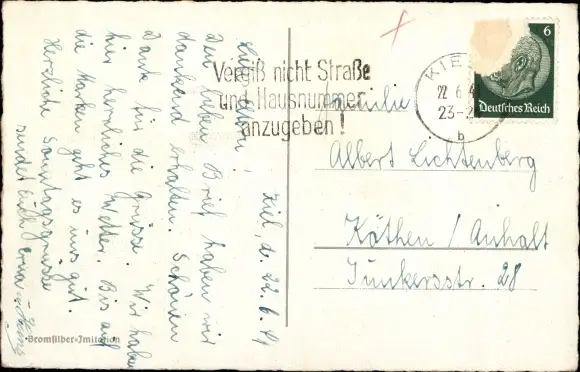 Kiel, d. 22.6.41
Liebe Eltern!
Den lieben Brief haben wir
dankend erhalten. Schönen
Dank für die Grüsse. Wir haben
hier herrliches Wetter. Bis auf
die Marken geht es uns gut.
Herzliche Sonntagsgrüsse
sendet Euch Erna u. Heinz
Bromsilber-Imitation
Vergiß nicht Straße
und Hausnummer
anzugeben!
KIEL
22.6.4
23-2
b
6
Deutsches Reich
Familie
Albert Lichtenberg
Köthen / Anhalt
Junkersstr. 28